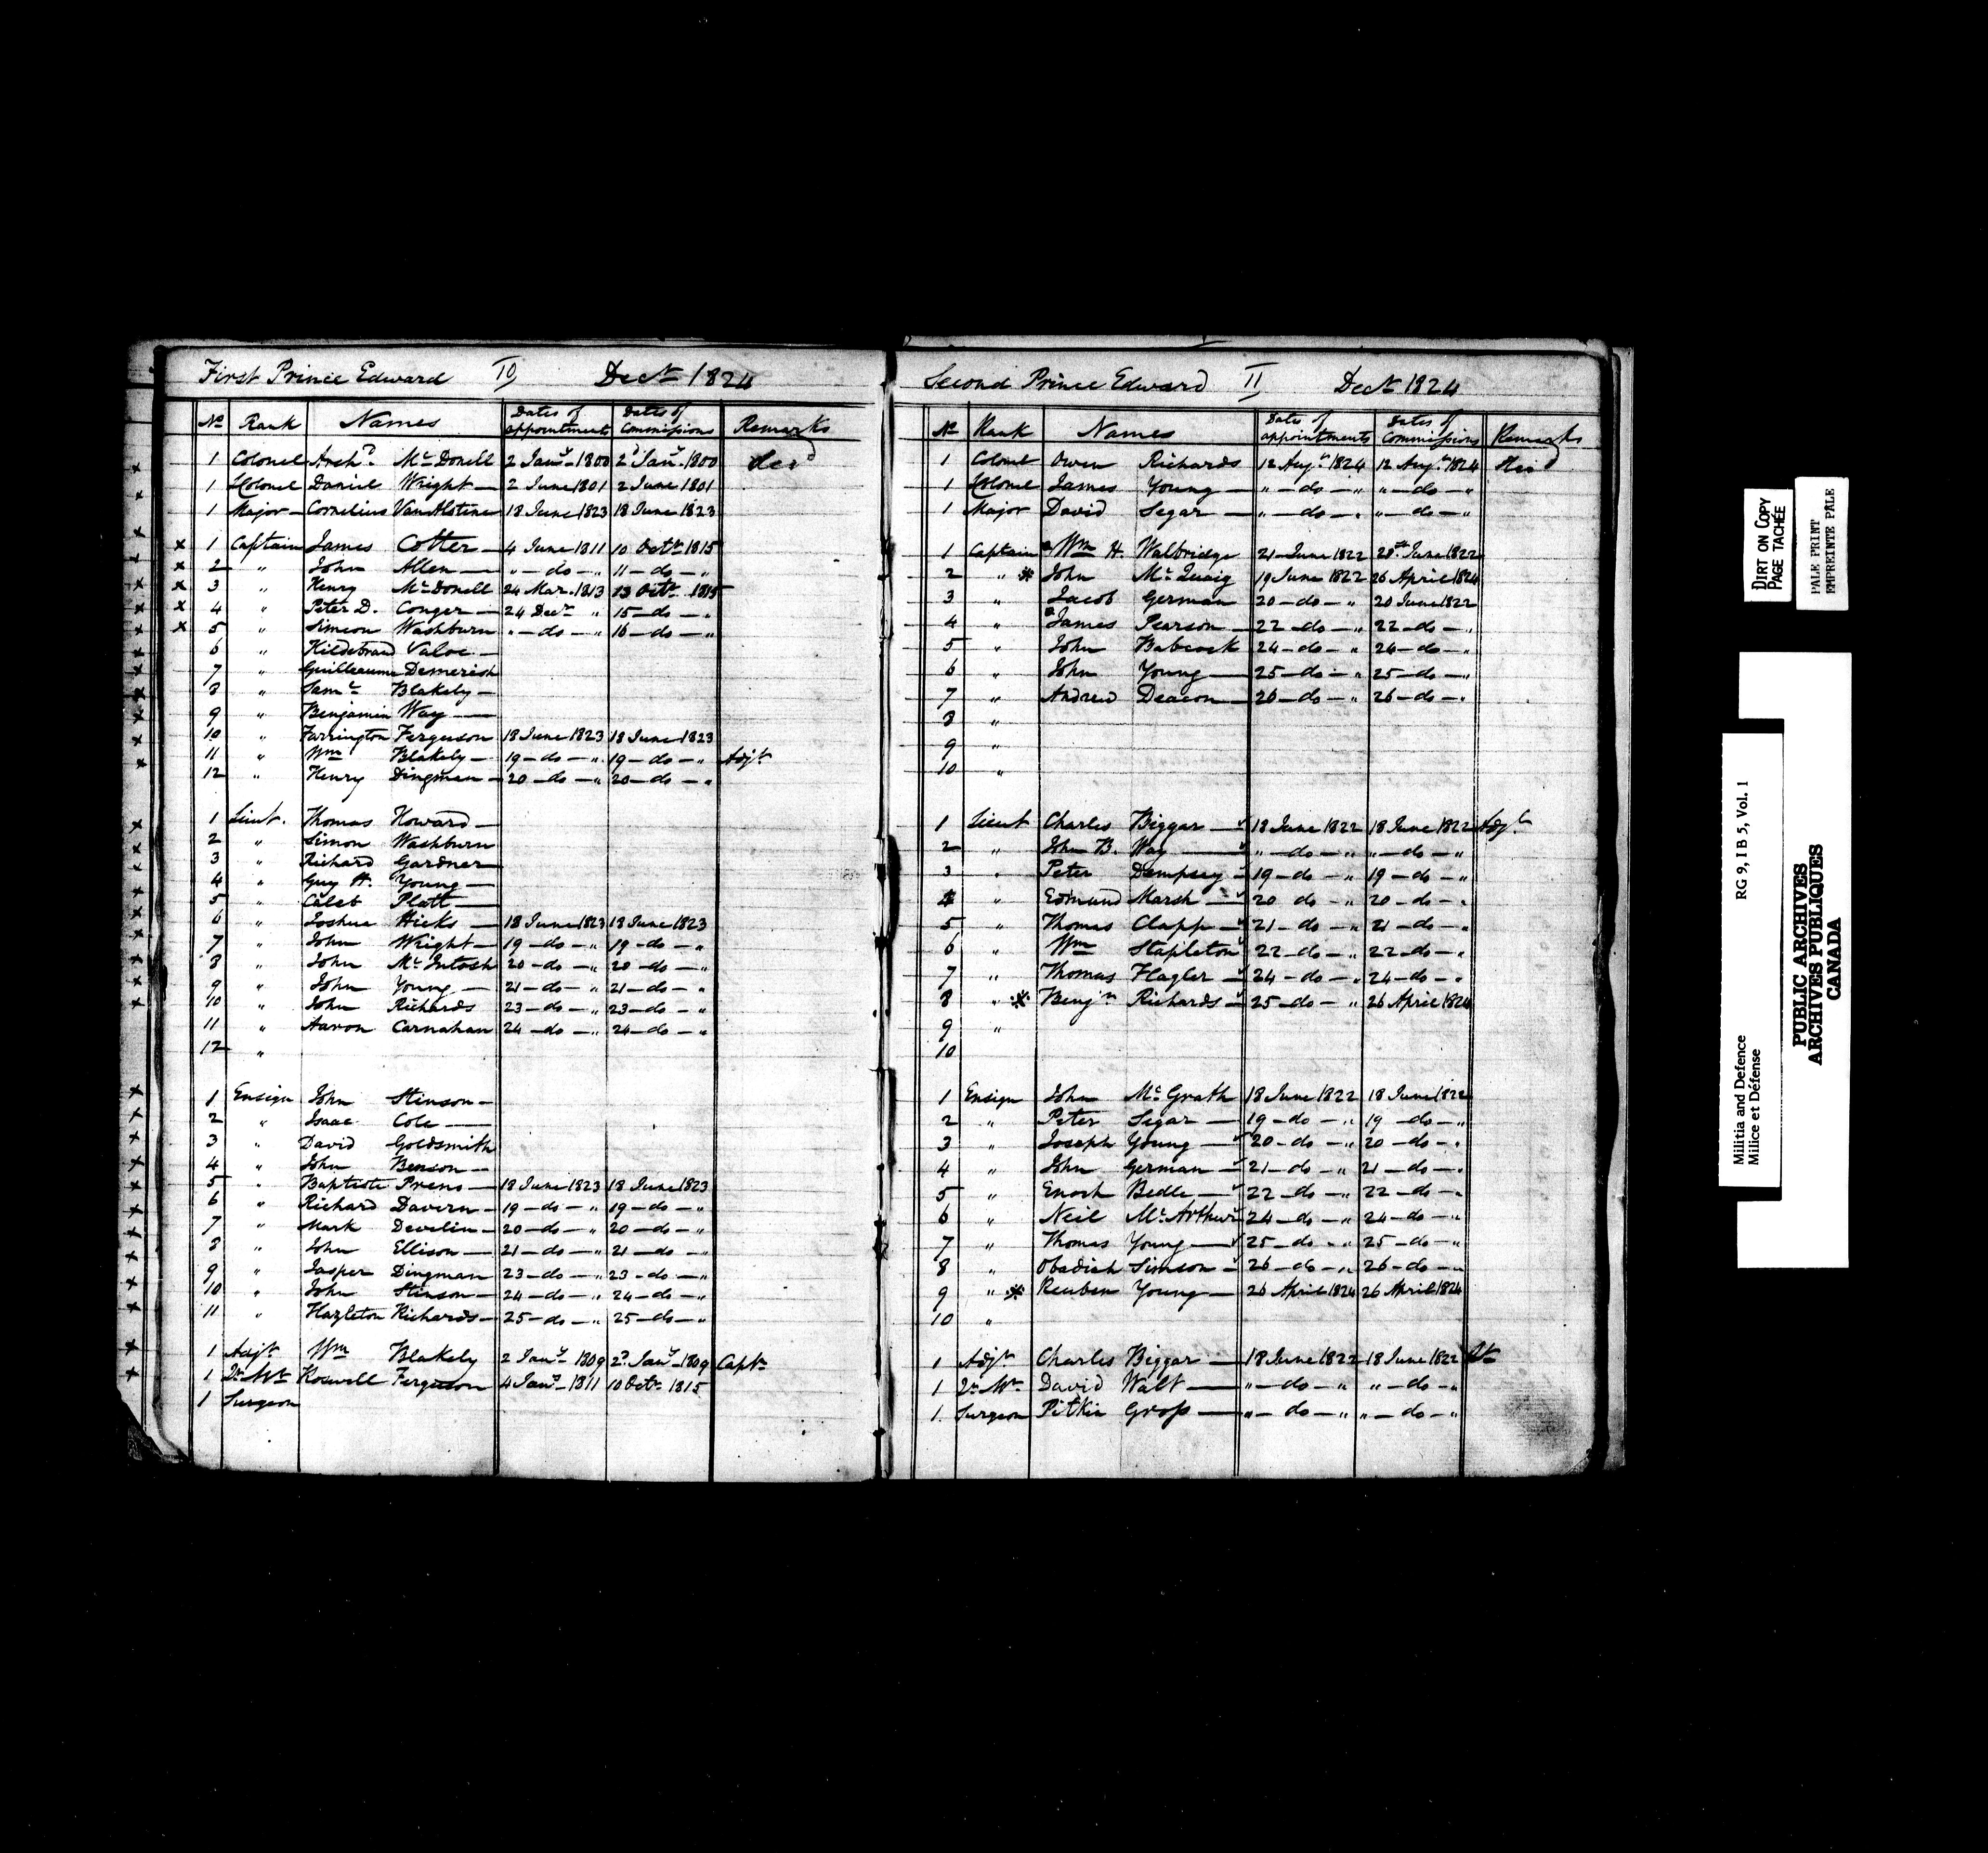 First Prince Edward 10 Decr 1824
No Rank Names Dates of appointments Dates of Commissions Remarks
1 Colonel Archd McDonell 2 Jany 1800 2d Jany 1800 dead
1 Lt Colonel Daniel Wright — 2 June 1801 2 June 1801
1 Major — Cornelius VanAlstine 18 June 1823 18 June 1823
x 1 Captain James Cotter — 4 June 1811 10 Octr 1815
x 2 " John Allen — " — do — " 11 — do — "
x 3 " Henry McDonell 24 Mar. 1813 13 Octr 1815
x 4 " Peter D. Conger — 24 Decr " 15 — do — "
x 5 " Simeon Washburn " — do — " 16 — do — "
6 " Hildebrand Valoe —
7 " Guilleaume Demerish
8 " Saml Blakely —
9 " Benjamin Way —
10 " Farrington Ferguson 18 June 1823 18 June 1823
11 " Wm Blakely — 19 — do — " 19 — do — " Adjt
12 " Henry Dingman — 20 — do — " 20 — do — "
1 Lieut. Thomas Howard —
2 " Simon Washburn
3 " Richard Gardner —
4 " Guy H. Young —
5 " Caleb Platt —
6 " Joshua Hicks — 18 June 1823 18 June 1823
7 " John Wright — 19 — do — " 19 — do — "
8 " John McIntosh 20 — do — " 20 — do — "
9 " John Young — 21 — do — " 21 — do — "
10 " John Richards 23 — do — " 23 — do — "
11 " Aaron Carnahan 24 — do — " 24 — do — "
12 "
1 Ensign John Stinson —
2 " Isaac Cole —
3 " David Goldsmith
4 " John Benson —
5 " Baptiste Prens — 18 June 1823 18 June 1823
6 " Richard Davern — 19 — do — " 19 — do — "
7 " Mark Develin — 20 — do — " 20 — do — "
8 " John Ellison — 21 — do — " 21 — do — "
9 " Jasper Dingman 23 — do — " 23 — do — "
10 " John Stinson — 24 — do — " 24 — do — "
11 " Hazleton Richards — 25 — do — " 25 — do — "
1 Adjt Wm Blakely 2 Jany 1809 2d Jany 1809 Captn
1 Qr Mr Roswell Ferguson 4 Jany 1811 10 Octr 1815
1 Surgeon
Second Prince Edward 11 Decr 1824
No Rank Names Dates of appointments Dates of Commissions Remarks
1 Colonel Owen Richards 12 Augt 1824 12 Augt 1824
1 Lt Colonel James Young — " — do — " " — do — "
1 Major David Segar — " — do — " " — do — "
1 Captain Wm H. Walbridge 21 June 1822 20th June 1822
2 " * John McQuaig 19 June 1822 26 April 1824
3 " Jacob German 20 — do — " 20 June 1822
4 " James Pearson — 22 — do — " 22 — do — "
5 " John Babcock 24 — do — " 24 — do — "
6 " John Young — 25 — do — " 25 — do — "
7 " Andrew Deacon — 26 — do — " 26 — do — "
8 "
9 "
10 "
1 Lieut Charles Biggar — 18 June 1822 18 June 1822 Adjt
2 " John B. Way — " — do — " " — do — "
3 " Peter Dempsey — 19 — do — " 19 — do — "
4 " Edmund Marsh — 20 do — " 20 — do — "
5 " Thomas Clapp — 21 — do — " 21 — do — "
6 " Wm Stapleton 22 — do — " 22 — do — "
7 " Thomas Flagler — 24 — do — " 24 — do — "
8 " * Benjn Richards — 25 — do — " 26 April 1824
9 "
10
1 Ensign John McGrath 18 June 1822 18 June 1822
2 " Peter Segar — 19 — do — " 19 — do — "
3 " Joseph Young — 20 — do — " 20 — do — "
4 " John German — 21 — do — " 21 — do — "
5 " Enoch Bedle — 22 — do — " 22 — do — "
6 " Neil McArthur 24 — do — " 24 — do — "
7 " Thomas Young — 25 — do — " 25 — do — "
8 " Obadiah Simson — 26 — do — " 26 — do — "
9 " * Reuben Young — 26 April 1824 26 April 1824
10 "
1 Adjt Charles Biggar — 18 June 1822 18 June 1822 Lt
1 Qr Mr David Walt — " — do — " " — do — "
1. Surgeon Pitkin Gross — " — do — " " — do — "
DIRT ON COPY
PAGE TACHÉE
PALE PRINT
EMPREINTE PALE
RG 9, I B 5, Vol. 1
Militia and Defence
Milice et Défense
PUBLIC ARCHIVES
ARCHIVES PUBLIQUES
CANADA